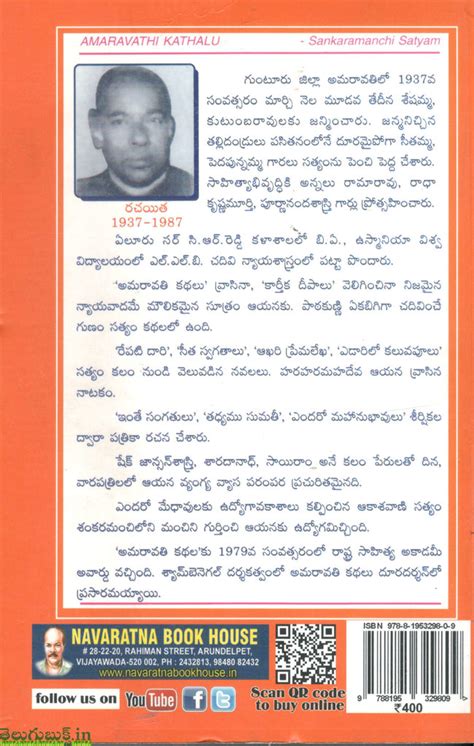 AMARAVATHI KATHALU - Sankaramanchi Satyam
గుంటూరు జిల్లా అమరావతిలో 1937వ
సంవత్సరం మార్చి నెల మూడవ తేదీన శేషమ్మ,
కుటుంబరావులకు జన్మించారు. జన్మనిచ్చిన
తల్లిదండ్రులు పసితనంలోనే దూరమైపోగా సీతమ్మ,
పెదపున్నమ్మ గారలు సత్యంను పెంచి పెద్ద చేశారు.
సాహిత్యాభివృద్ధికి అన్నలు రామారావు, రాధా
కృష్ణమూర్తి, పూర్ణానందశాస్త్రి గార్లు ప్రోత్సహించారు.
రచయిత
1937-1987
ఏలూరు సర్ సి.ఆర్.రెడ్డి కళాశాలలో బి.ఏ., ఉస్మానియా విశ్వ
విద్యాలయంలో ఎల్.ఎల్.బి. చదివి న్యాయశాస్త్రంలో పట్టా పొందారు.
'అమరావతి కథలు' వ్రాసినా, 'కార్తీక దీపాలు' వెలిగించినా నిజమైన
న్యాయవాదమే మౌలికమైన సూత్రం ఆయనకు. పాఠకుణ్ణి ఏకబిగిగా చదివించే
గుణం సత్యం కథలలో ఉంది.
'రేపటి దారి', 'సీత స్వగతాలు', 'ఆఖరి ప్రేమలేఖ', 'ఎడారిలో కలువపూలు'
సత్యం కలం నుండి వెలువడిన నవలలు. హరహరమహదేవ ఆయన వ్రాసిన
నాటకం.
'ఇంతే సంగతులు', 'తధ్యము సుమతీ', 'ఎందరో మహానుభావులు' శీర్షికల
ద్వారా పత్రికా రచన చేశారు.
షేక్ జాన్సన్‌శాస్త్రి, శారదానాధ్, సాయిరాం అనే కలం పేరులతో దిన,
వారపత్రిలలో ఆయన వ్యంగ్య వ్యాస పరంపర ప్రచురితమైనది.
ఎందరో మేధావులకు ఉద్యోగావకాశాలు కల్పించిన ఆకాశవాణి సత్యం
శంకరమంచిలోని మంచిని గుర్తించి ఆయనకు ఉద్యోగమిచ్చింది.
'అమరావతి కథల'కు 1979వ సంవత్సరంలో రాష్ట్ర సాహిత్య అకాడమీ
అవార్డు వచ్చింది. శ్యామ్‌బెనెగల్ దర్శకత్వంలో అమరావతి కథలు దూరదర్శన్‌లో
ప్రసారమయ్యాయి.
NAVARATNA BOOK HOUSE
# 28-22-20, RAHIMAN STREET, ARUNDELPET,
VIJAYAWADA-520 002, PH : 2432813, 98480 82432
www.navaratnabookhouse.in
follow us on YouTube f
Scan QR code
to buy online
ISBN 978-8-1953298-0-9
9 788195 329809 >
₹400
తెలుగుబుక్.in